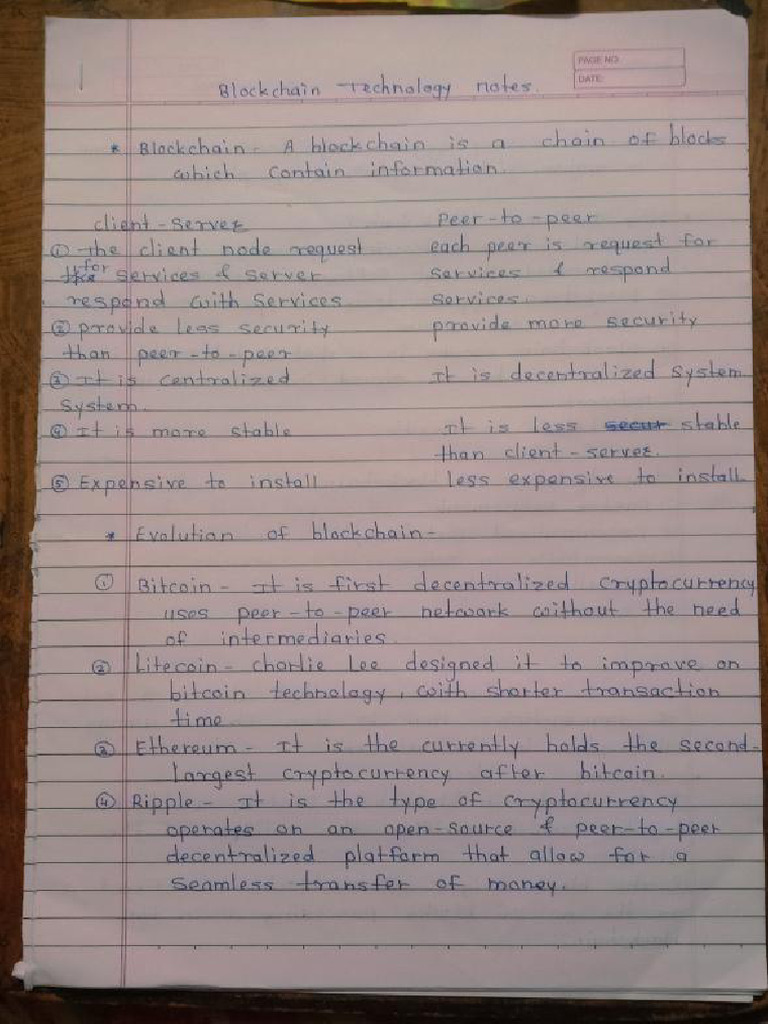 PAGE NO
DATE:
Blockchain Technology notes.
* Blockchain - A blockchain is a chain of blocks
which contain information.
client-server Peer-to-peer
① The client node request each peer is request for
for services & server services & respond
respond with services services.
② provide less security provide more security
than peer-to-peer
③ It is centralized It is decentralized system
system.
④ It is more stable It is less secur stable
than client-server.
⑤ Expensive to install less expensive to install
* Evolution of blockchain-
① Bitcoin - It is first decentralized cryptocurrency
uses peer-to-peer network without the need
of intermediaries.
② Litecoin - charlie Lee designed it to improve on
bitcoin technology, with shorter transaction
time
③ Ethereum - It is the currently holds the second-
largest cryptocurrency after bitcoin.
④ Ripple - It is the type of cryptocurrency
operates on an open-source & peer-to-peer
decentralized platform that allow for a
seamless transfer of money.